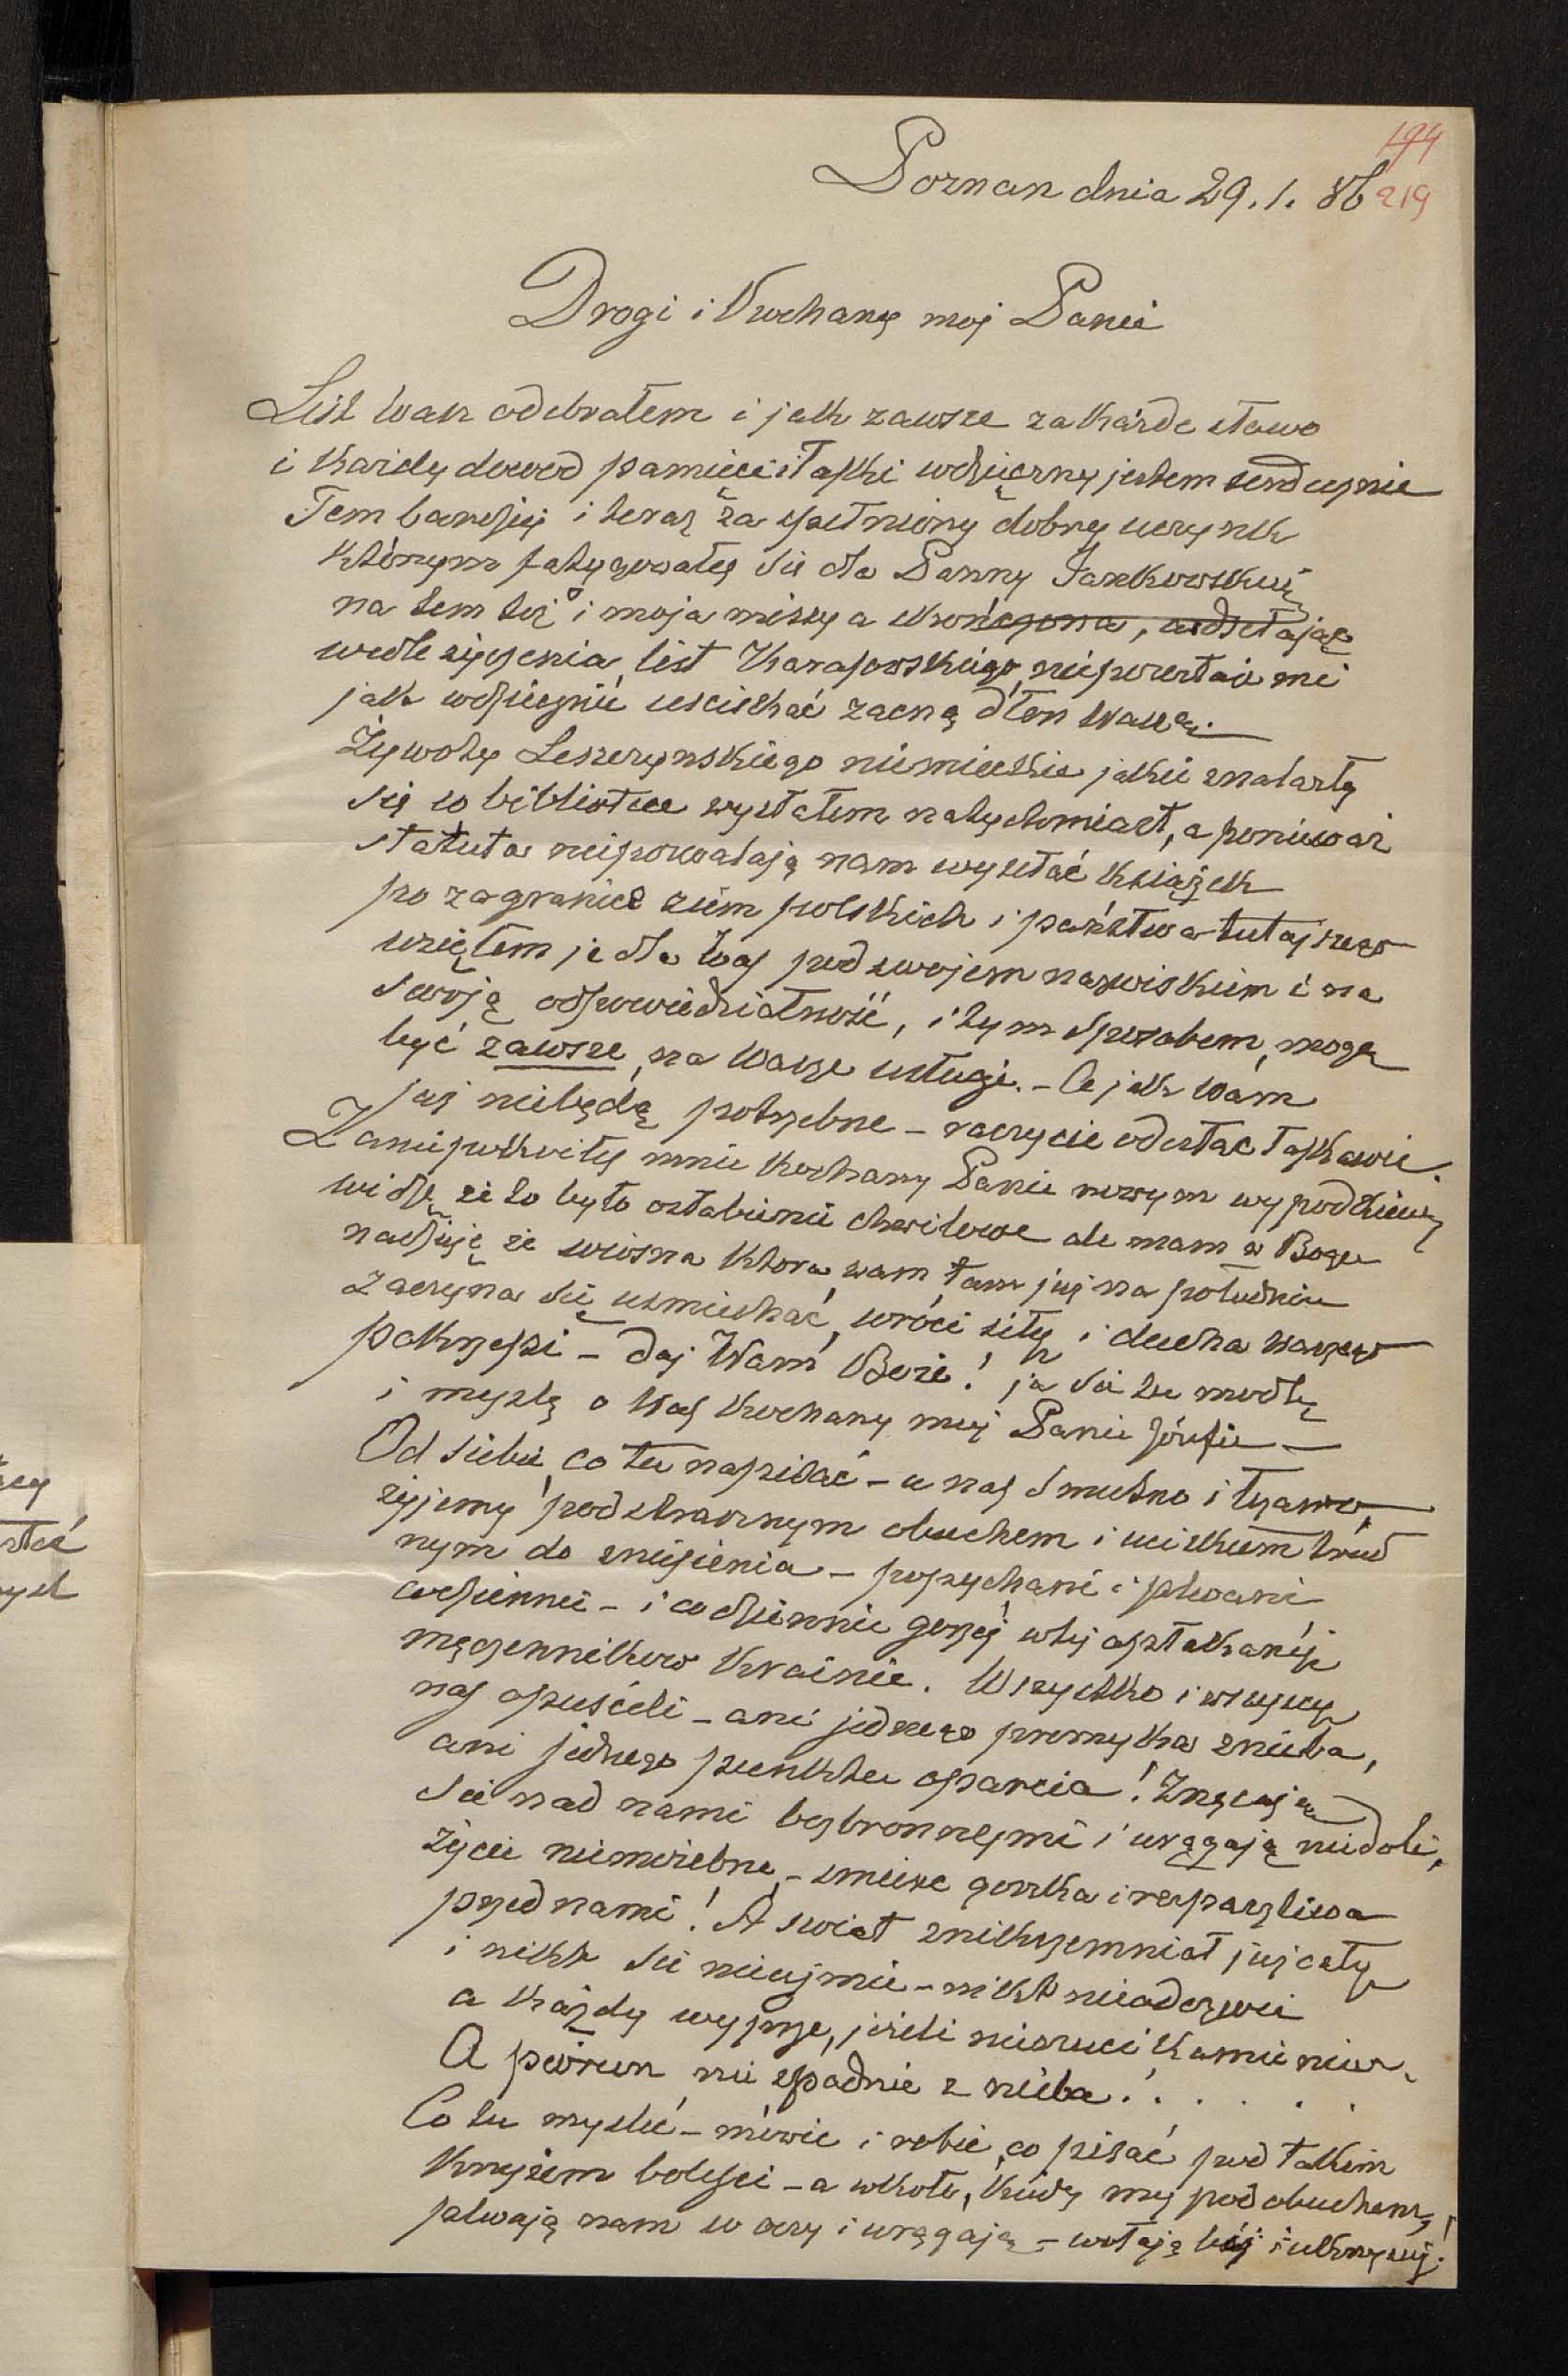 194
219
Poznan dnia 29. 1. 86
Drogi i Kochany moj Panie
List wasz odebrałem i jak zawsze za każde słowo
i każdy dowod pamieci i łaski wdzięczny jestem serdecznie
Tem bardziej i teraz za spełniony dobry uczynek
którym fatygowałeś sie dla Panny Jankowskiej
na tem też i moja missya skończona, odsełając
wedle życzenia list Karasowskiego, niepozostaie mi
jak wdzięcznie usciskać zacną dłon waszą.
Żywoty Leszczynskiego niemieckie jakie znalazły
się w bibliotece wysłałem natychmiast, a poniewaz
statuta niepozwalają nam wysełać książek
po zagranice ziem polskich i państwa tutejszego
wziąłem je dla Was pod swojem nazwiskiem i na
swoją odpowiedzialność, i tym sposobem, mogą
być zawsze, na Wasze usługi. - A jak Wam
juz niebędą potrzebne - raczycie odesłac łaskawie.
Zaniepokoiłeś mnie Kochany Panie nowym
widzę że to było osłabienie chwilowe ale mam w Bogu
nadzieję że wiosna ktora wam tam juz na południu
zaczyna się usmiechać, wróci siły i ducha waszego
pokrzepi - daj Wam Boże! ja sie tu modlę
i myszlę o Was Kochany moj Panie Józefie -
Od siebie co tu napisać - u nas smutno i łzawo,
żyjemy pod strasznym obuchem i uciskiem trud
nym do zniesienia - popychani i plwani
codziennie - i codziennie gorzej w tej opłakanej
męczennikow Krainie. Wszystko i wszyscy
nas opuścili - ani jednego promyka z nieba,
ani jednego punktu oparcia! Znęcają
sie nad nami bezbronnymi i urągają niedoli,
życie niemożebne, - smierc gorzka i rozpaczliwa
przed nami! A swiat znikczemniał już cały
i nikt sie nieujmie - nikt nieodezwie
a każdy wyprze, jeżeli nierzuci kamieniem.
A piorun nie spadnie z nieba! . . . . .
Co tu myslić - mówic i robic, co pisać pod takim
Krzyżem boleści - a wkoło, kiedy my pod obuchem,
plwają nam w oczy i urągają - wołają bij i ukrzyżuj!